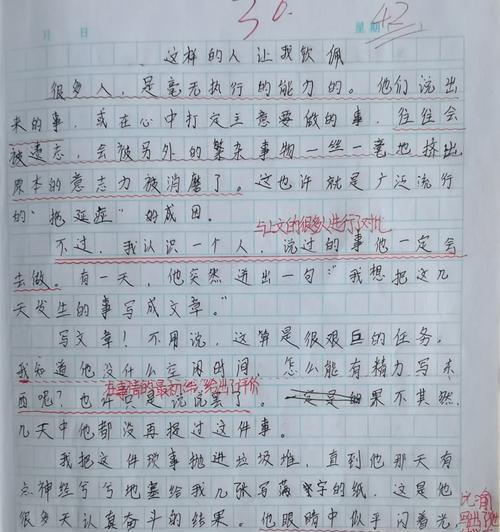 30.
42
月 日
星期
这样的人让我钦佩
很多人，是毫无执行的能力的。他们说出
来的事，或在心中打定主意要做的事，往往会
被遗忘，会被另外的繁杂事物一丝一毫地挤出，
原本的意志力被消磨了。这也许就是广泛流行
的“拖延症”的成因。
与上文的很多人进行了对比
不过，我认识一个人，说过的事他一定会
去做。有一天，他突然迸出一句：“我想把这几
天发生的事写成文章。”
写文章！不用说，这算是很艰巨的任务。
我知道他没什么空闲时间，怎么能有精力写东
在事情的最初给出了评价
西呢？也许只是说说罢了。果不其然，
几天中他都没再提过这件事。
我把这件琐事抛进垃圾堆，直到他那天有
点神经兮兮地塞给我几张写满字的纸，这是他
很多天认真奋斗的结果。他眼睛中似乎闪着光